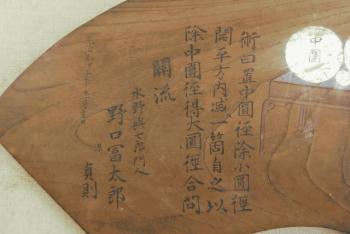 中圓
術曰置中圓径除小圓径
開平方内减一箇自之以
除中圓径得大圓径合問
關流
水野與七郎門人
野口冨太郎
貞則